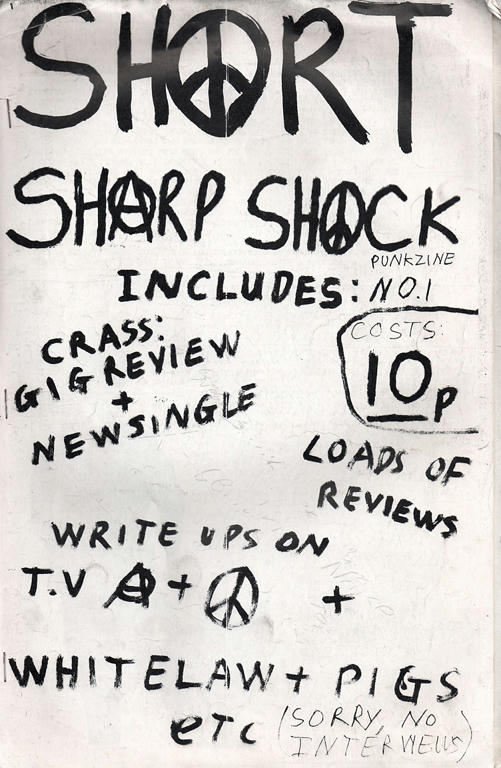 SHORT
SHARP SHOCK
PUNKZINE
INCLUDES: NO.1
CRASS:
GIG REVIEW
+
NEW SINGLE
COSTS:
10p
LOADS OF
REVIEWS
WRITE UPS ON
T.V Ⓐ + ☮ +
WHITELAW + PIGS
etc (SORRY, NO
INTERVIEWS)